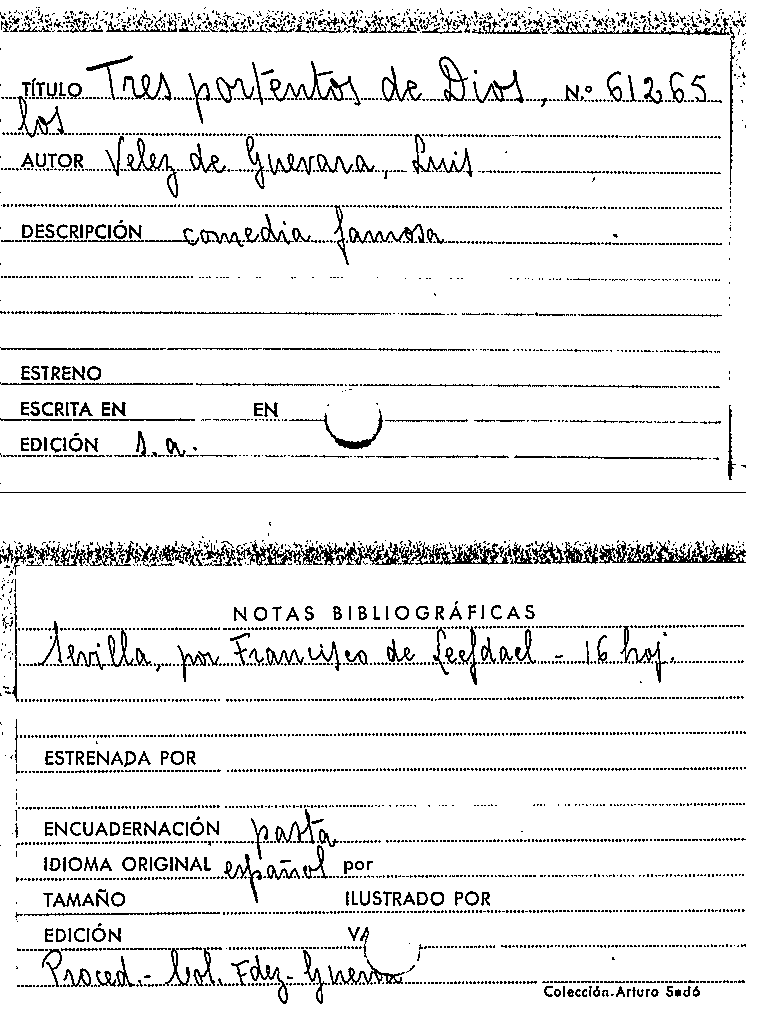 TÍTULO Tres portentos de Dios, N.º 61265
los
AUTOR Velez de Guevara, Luis
DESCRIPCIÓN comedia famosa
ESTRENO
ESCRITA EN EN
EDICIÓN s.a.
NOTAS BIBLIOGRÁFICAS
Sevilla, por Francisco de Leefdael - 16 hoj.
ESTRENADA POR
ENCUADERNACIÓN pasta
IDIOMA ORIGINAL español por
TAMAÑO ILUSTRADO POR
EDICIÓN
Proced.- Col. Fdez- Guerra
Colección Arturo Sedó